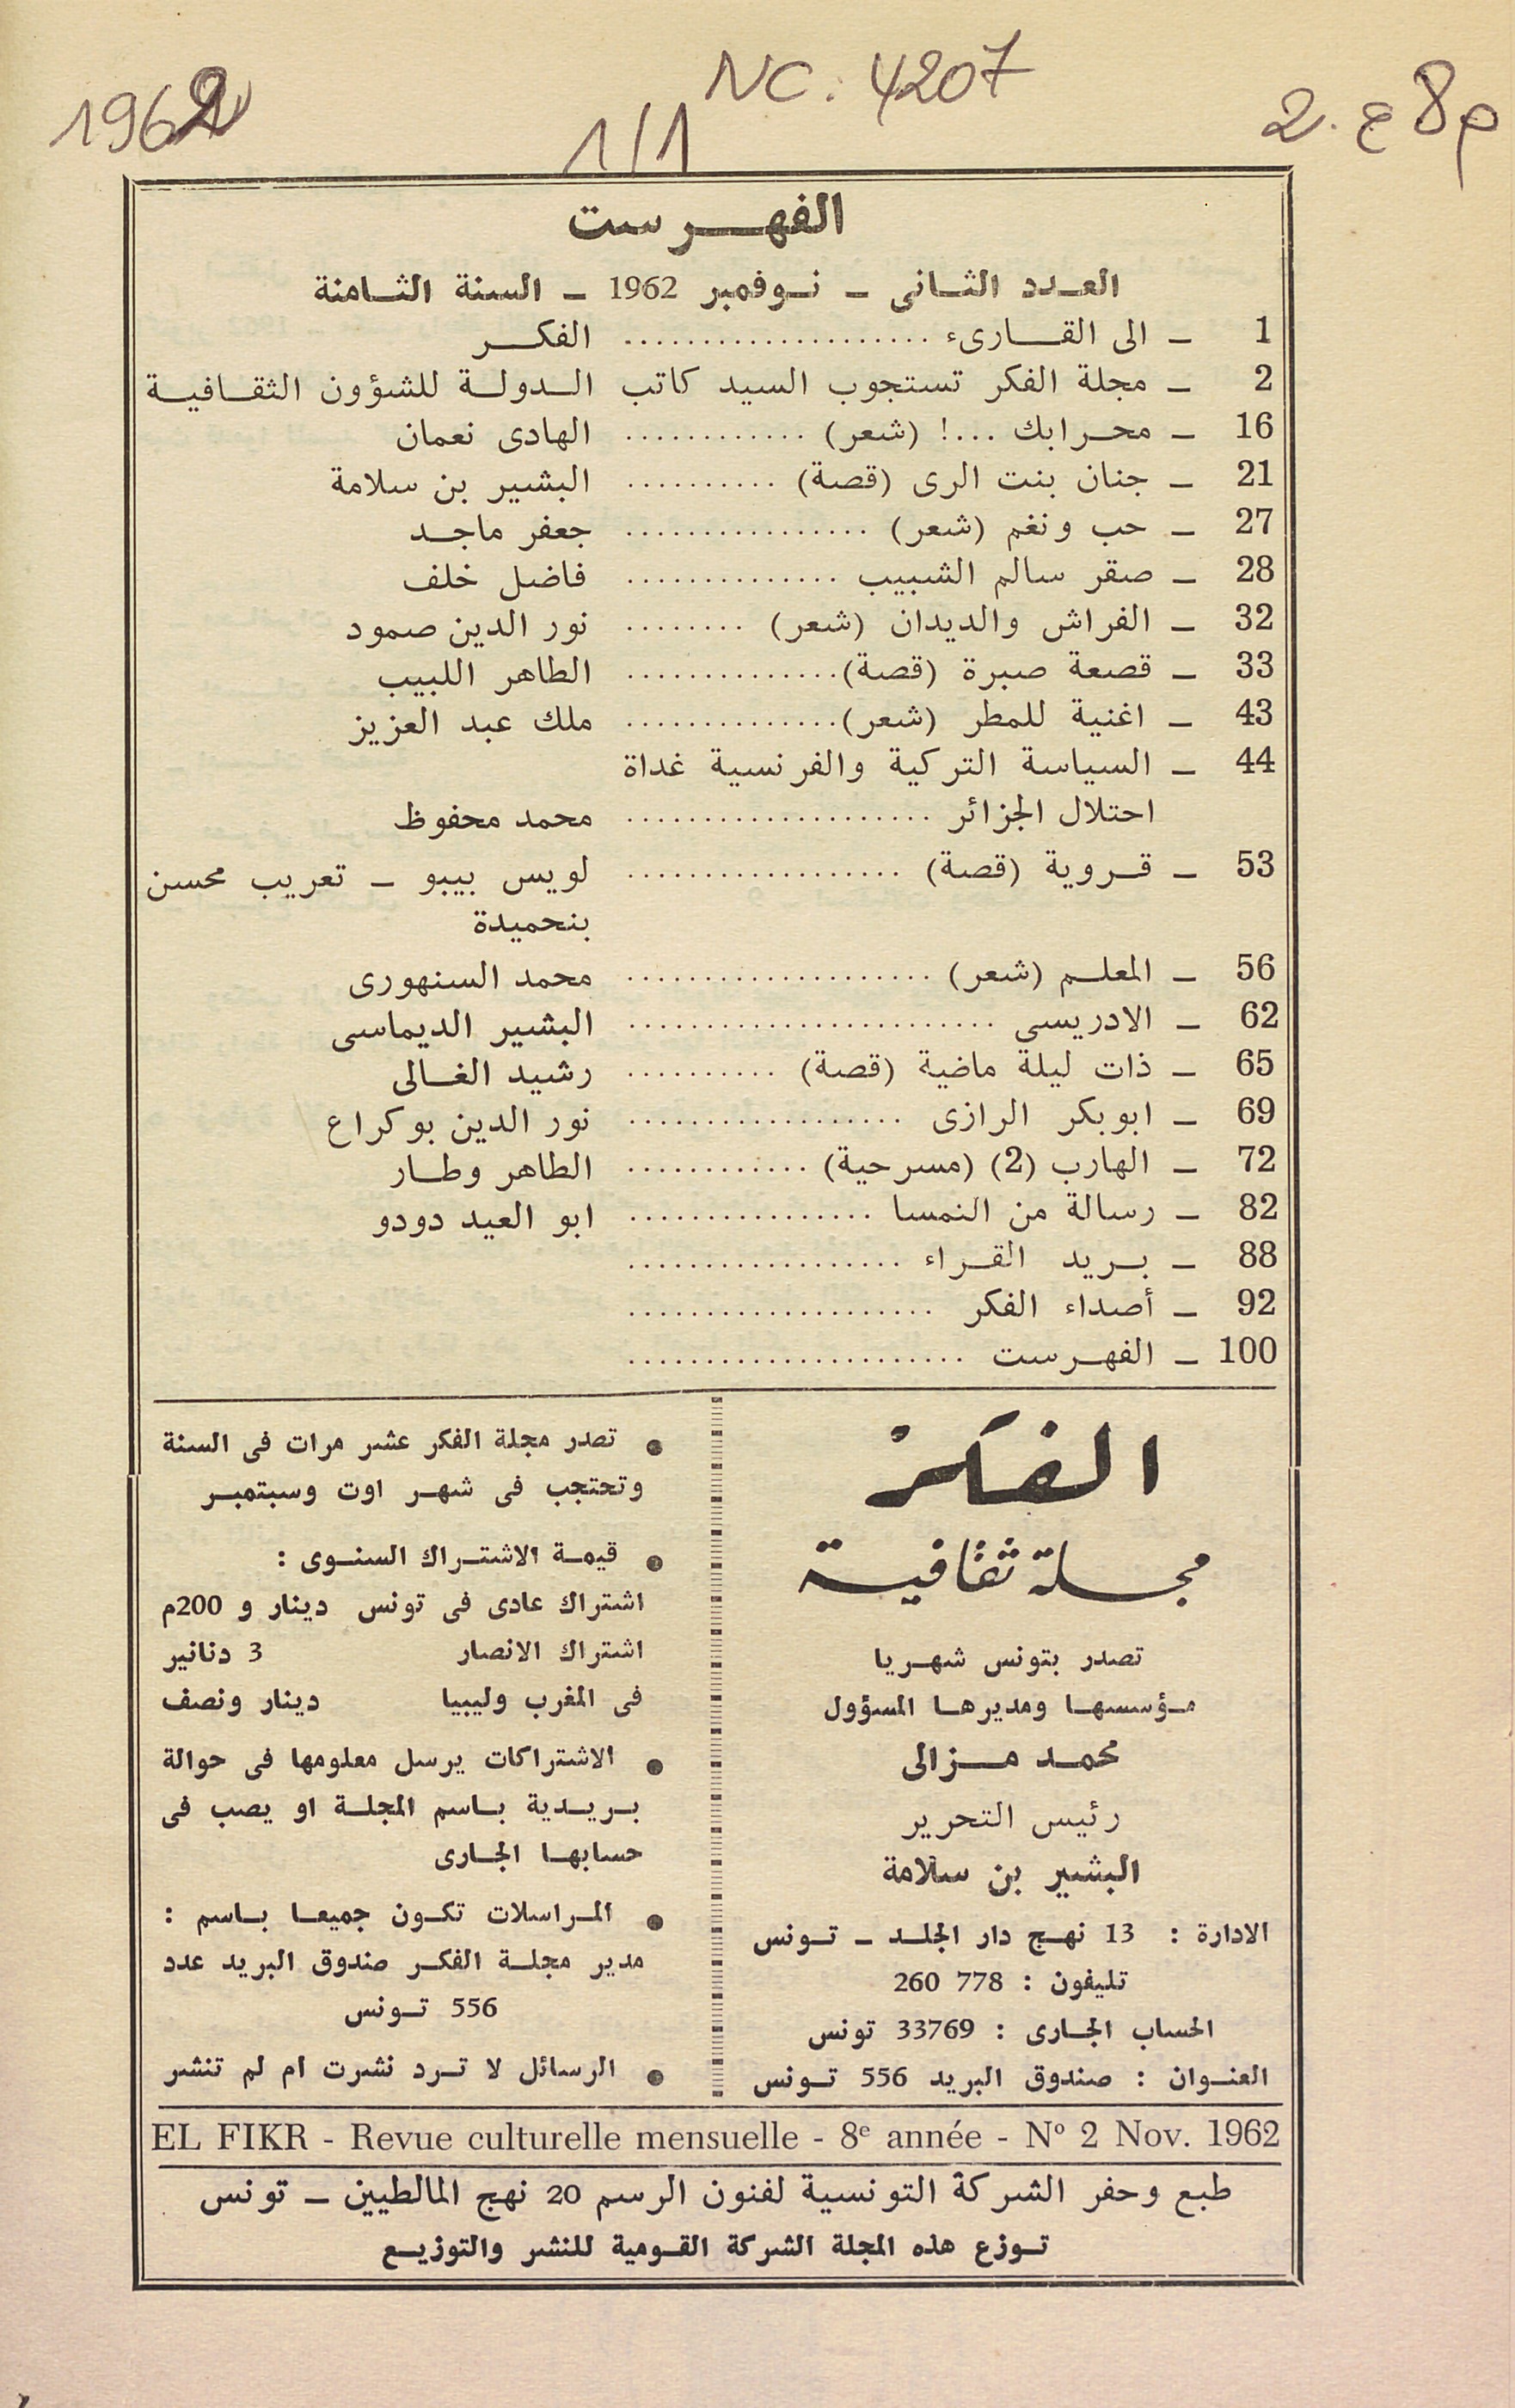 NC. 4207
1962
1/1
م 8 ج. 2
الفهرست
العدد الثانى ـ نوفمبر 1962 ـ السنة الثامنة
1 ـ الى القارىء .................... الفكر
2 ـ مجلة الفكر تستجوب السيد كاتب الدولة للشؤون الثقافية
16 ـ محرابك ...! (شعر) ............ الهادى نعمان
21 ـ جنان بنت الرى (قصة) .......... البشير بن سلامة
27 ـ حب ونغم (شعر) ................ جعفر ماجد
28 ـ صقر سالم الشبيب .............. فاضل خلف
32 ـ الفراش والديدان (شعر) ........ نور الدين صمود
33 ـ قصعة صبرة (قصة) .............. الطاهر اللبيب
43 ـ اغنية للمطر (شعر) .............. ملك عبد العزيز
44 ـ السياسة التركية والفرنسية غداة
احتلال الجزائر .................... محمد محفوظ
53 ـ قروية (قصة) .................. لويس بيبو ـ تعريب محسن
بنحميدة
56 ـ المعلم (شعر) .................... محمد السنهورى
62 ـ الادريسى ........................ البشير الديماسى
65 ـ ذات ليلة ماضية (قصة) .......... رشيد الغالى
69 ـ ابوبكر الرازى .................. نور الدين بوكراع
72 ـ الهارب (2) (مسرحية) ............ الطاهر وطار
82 ـ رسالة من النمسا ................ ابو العيد دودو
88 ـ بريد القراء ..................
92 ـ أصداء الفكر ....................
100 ـ الفهرست ......................
الفكر
مجلة ثقافية
تصدر بتونس شهريا
مؤسسها ومديرها المسؤول
محمد مزالى
رئيس التحرير
البشير بن سلامة
الادارة : 13 نهج دار الجلد ـ تونس
تليفون : 778 260
الحساب الجارى : 33769 تونس
العنوان : صندوق البريد 556 تونس
● تصدر مجلة الفكر عشر مرات فى السنة
وتحتجب فى شهر اوت وسبتمبر
● قيمة الاشتراك السنوى :
اشتراك عادى فى تونس دينار و 200م
اشتراك الانصار 3 دنانير
فى المغرب وليبيا دينار ونصف
● الاشتراكات يرسل معلومها فى حوالة
بريدية باسم المجلة او يصب فى
حسابها الجارى
● المراسلات تكون جميعا باسم :
مدير مجلة الفكر صندوق البريد عدد
556 تونس
● الرسائل لا ترد نشرت ام لم تنشر
EL FIKR - Revue culturelle mensuelle - 8e année - Nº 2 Nov. 1962
طبع وحفر الشركة التونسية لفنون الرسم 20 نهج المالطيين ـ تونس
توزع هذه المجلة الشركة القومية للنشر والتوزيع